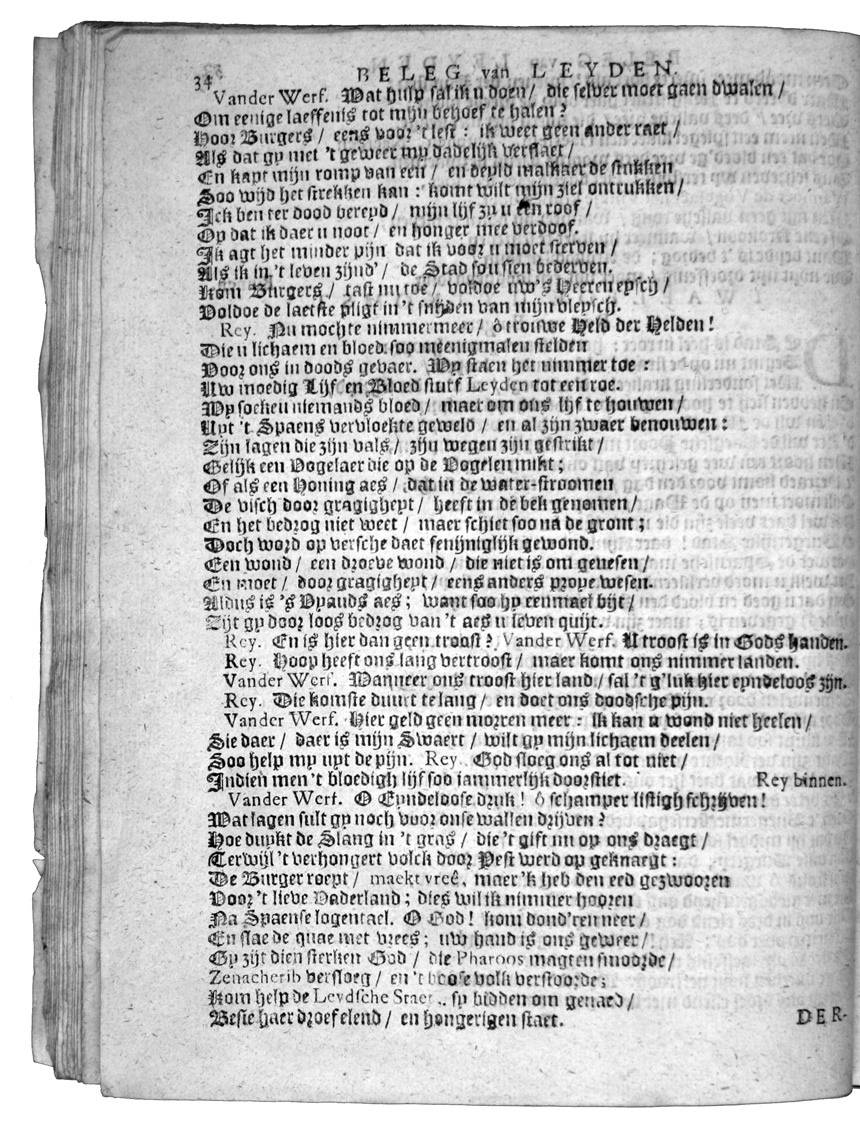 34 BELEG van LEYDEN.
Vander Werf. Wat hulp sal ik u doen / die selver moet gaen dwalen /
Om eenige laeffenis tot mijn behoef te halen?
Hoor Burgers / eens voor 't lest: ik weet geen ander raet /
Als dat gy met 't geweer my dadelijk verslaet /
En kapt mijn romp van een / en deyld malkaer de stukken
Soo wijd het strekken kan: komt wilt mijn ziel ontrukken /
Ick ben ter dood bereyd / mijn lijf zy u een roof /
Op dat ik daer u noot / en honger mee verdoof.
Ik agt het minder pijn dat ik voor u moet sterven /
Als ik in 't leven zijnd' / de Stad sou sien bederven.
Kom Burgers / tast nu toe / voldoe uw's Heeren eysch /
Voldoe de laetste pligt in 't snijden van mijn vleysch.
Rey. Nu mochte nimmermeer / ô trouwe Held der Helden!
Die u lichaem en bloed soo meenigmalen stelden
Voor ons in doods gevaer. Wy staen het nimmer toe:
Uw moedig Lijf en Bloed stutf Leyden tot een roe.
Wy soeken niemands bloed / maer om ons lijf te houwen /
Uyt 't Spaens vervloekte geweld / en al zijn zwaer benouwen:
Zijn lagen die zijn vals / zijn wegen zijn gestrikt /
Gelijk een Vogelaer die op de Vogelen mikt;
Of als een Honing aes / dat in de water-stroomen
De visch door gragigheyt / heeft in de bek genomen /
En het bedrog niet weet / maer schiet soo na de gront;
Doch word op versche daet fenijniglijk gewond.
Een wond / een droeve wond / die niet is om genesen /
En moet / door gragigheyt / eens anders prope wesen.
Aldus is 's Vyands aes; want soo hy eenmael bijt /
Zijt gy door loos bedrog van 't aes u leven quijt.
Rey. En is hier dan geen troost? Vander Werf. U troost is in Gods handen.
Rey. Hoop heeft ons lang vertroost / maer komt ons nimmer landen.
Vander Werf. Wanneer ons troost hier land / sal 't g'luk hier eyndeloos zijn.
Rey. Die komste duurt te lang / en doet ons doodsche pijn.
Vander Werf. Hier geld geen morren meer: ik kan u wond niet heelen /
Sie daer / daer is mijn Swaert / wilt gy mijn lichaem deelen /
Soo help my uyt de pijn. Rey. God sloeg ons al tot niet /
Indien men 't bloedigh lijf soo jammerlijk doorstiet. Rey binnen.
Vander Werf. O Eyndeloose druk! ô schamper listigh schrijven!
Wat lagen sult gy noch voor onse wallen drijven?
Hoe duykt de Slang in 't gras / die 't gift nu op ons draegt /
Terwijl 't verhongert volck door Pest werd op geknaegt:
De Burger roept / maekt vreê, maer 'k heb den eed gezwooren
Voor 't lieve Vaderland; dies wil ik nimmer hooren
Na Spaense logentael. O God! kom dond'ren neer /
En slae de quae met vrees; uw hand is ons geweer /
Gy zijt dien sterken God / die Pharoos magten smoorde /
Zenacherib versloeg / en 't boose volk verstoorde;
Kom help de Leydsche Staet, sy bidden om genaed /
Besie haer droef elend / en hongerigen staet.
DER-